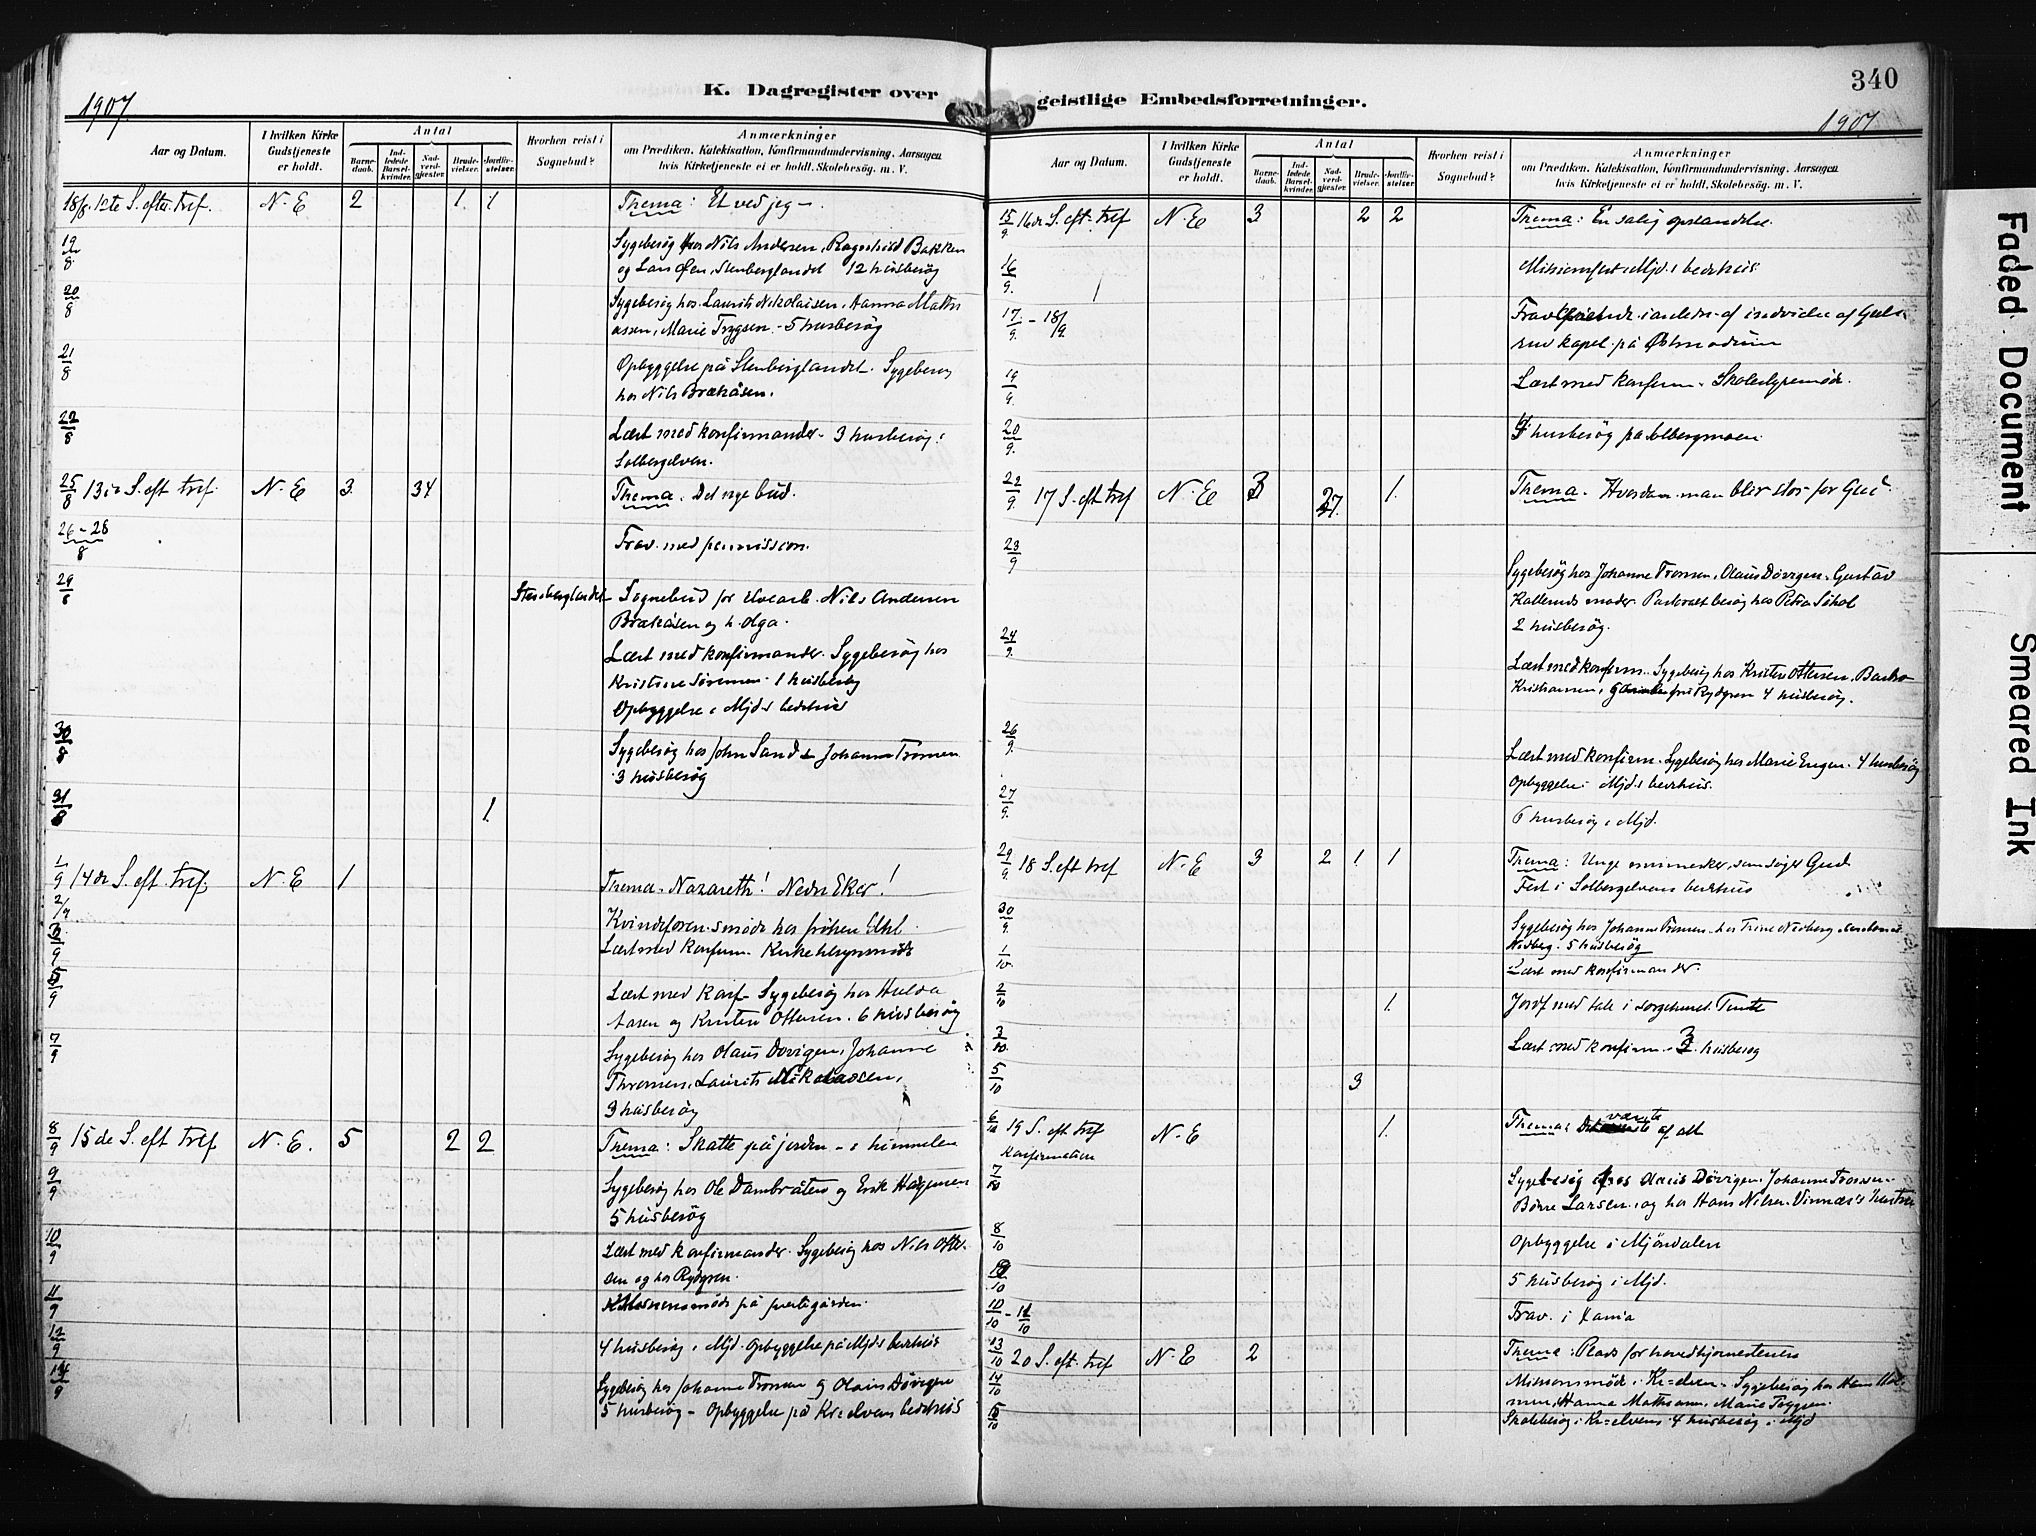 K. Dagregister over geistlige Embedsforretninger.
340
1907.
1907
Aar og Datum.
I hvilken Kirke Gudstjeneste er holdt.
Antal
Barne-daab.
Ind-ledede Barsel-kvinder.
Nad-verd-gjæster.
Brude-vielser.
Jordfæ-stelser.
Hvorhen reist i Sognebud?
Anmærkninger
om Prædiken, Katekisation, Konfirmandundervisning, Aarsagen
hvis Kirketjeneste ei er holdt, Skolebesøg. m. V.
18/8. 12te S. efter tref. N. E 2 1. 1 Thema: Et ved jeg -.
19/8 Sygebesøg hos Nils Andersen, Ragnhild Bakken
og Lars Øen, Stenberglandet 12 husbesøg
20/8 Sygebesøg hos Laurits Nikolaisen, Hanna Mathi
assen, Marie Trygsen. - 5 husbesøg
21/8 Opbyggelse på Stenberglandet. Sygebesøg
hos Nils Brækåsen.
22/8 Læst med konfirmander - 3 husbesøg i
Solbergelven.
25/8 13de S. eft tref. N. E 3. 34 Thema. Det nye bud.
26-28/8 Frav. med permission.
29/8 Stenberglandet Sognebud for Nils Andersen
Brækåsen og h. Olga.
Læst med konfirmander. Sygebesøg hos
Kristine Sørensen - 1 husbesøg
Opbyggelse i Mjd.s bedehus
30/8 Sygebesøg hos John Sand & Johanne Tronsen
3 husbesøg
31/8 1.
1/9 14de S. eft. tref. N. E 1 Thema. Nazareth! Nedre Eker!
2/9 Kvindeforen.smøde hos frøken
3/9 Læst med konfirm. Kirketilsynsmøde
5/9 Læst med konf - Sygebesøg hos Hulda
Aasen og Kristen Ottersen. 6 husbesøg
7/9 Sygebesøg hos Olaus Dövigen, Johanne
Thronsen, Laurits Nikolaisen,
3 husbesøg
8/9 15de S. eft tref N. E. 5 2 2 Thema: Skatte på jorden - i himmelen
9/9 Sygebesøg hos Ole Dambråten og Erik
5 husbesøg
10/9 Læst med konfirmander. Sygebesøg hos Nils Otte
sen og hos Rydgren.
11/9 på prestegården.
12/9 4 husbesøg i Mjd. Opbyggelse på Mjd.s bedehus
14/9 Sygebesøg hos Johanne Tronsen og Olaus Dövigen
5 husbesøg - Opbyggelse på Kr=elvens bedehus
Aar og Datum.
I hvilken Kirke Gudstjeneste er holdt.
Antal
Barne-daab.
Ind-ledede Barsel-kvinder.
Nad-verd-gjæster.
Brude-vielser.
Jordfæ-stelser.
Hvorhen reist i Sognebud?
Anmærkninger
om Prædiken, Katekisation, Konfirmandundervisning, Aarsagen
hvis Kirketjeneste ei er holdt, Skolebesøg. m. V.
15/9 16de S. eft. tref N. E 3 2 2 Thema: En salig opstandelse
16/9. Missionsfest i Mjd.s bedehus
17/9. - 18/9. i anledn. af indvielse af
rud kapel på Østmodum
19/9. Læst med konfirm. Skolestyremøde.
20/9. 4 husbesøg på Solbergmoen
22/9. 17 S. eft tref N. E 3 27. 1. Thema. Hvordan man blir stor for Gud.
23/9 Sygebesøg hos Johanne Tronsen, Olaus Dövigen, Gustav
Kallerud's moder. besøg hos Petra
2 husbesøg.
24/9. Læst med konfirm. Sygebesøg hos Kristen Ottersen,
Kristiansen, Rydgren 4 husbesøg.
26/9. Læst med konfirm. Sygebesøg hos Marie Engen. 4 husbesøg
Opbyggelse i Mjd.s bedehus.
27/9. 6 husbesøg i Mjd.
29/9. 18 S. eft tref N. E 3 2 1. 1 Thema: Unge mennesker, som søger Gud
Fest i Solbergelvens bedehus
30/9. Sygebesøg hos Johanne Tronsen - hos Trine Nedberg
Nedberg. 5 husbesøg
1/10. Læst med konfirmander.
2/10 1. Jordf med tale i sorgehuset.
3/10. Læst med konfirm. 3 husbesøg
5/10 3
6/10 19 S. eft tref N. E 1. Thema: værste af alt
Konfirmation
7/10 Sygebesøg hos Olaus Dövigen, Johanne Tronsen
Börre Larsen, og hos Hans Nilsen Vinnæs's hustru
8/10 Opbyggelse i Mjöndalen
9/10 5 husbesøg i Mjd.
10/10 - 11/10 Frav. i Xania
13/10 20 S. eft. tref N. E 2 Thema: Plads for hovedhjørnestenen
14/10 Missionsmøde i Kr=elven. Sygebesøg hos Hans
Hanna Mathiasen, Marie Tryggsen.
15/10 Skolebesøg i Kr=elvens 4 husbesøg i Mjd
Faded Document
Smeared Ink